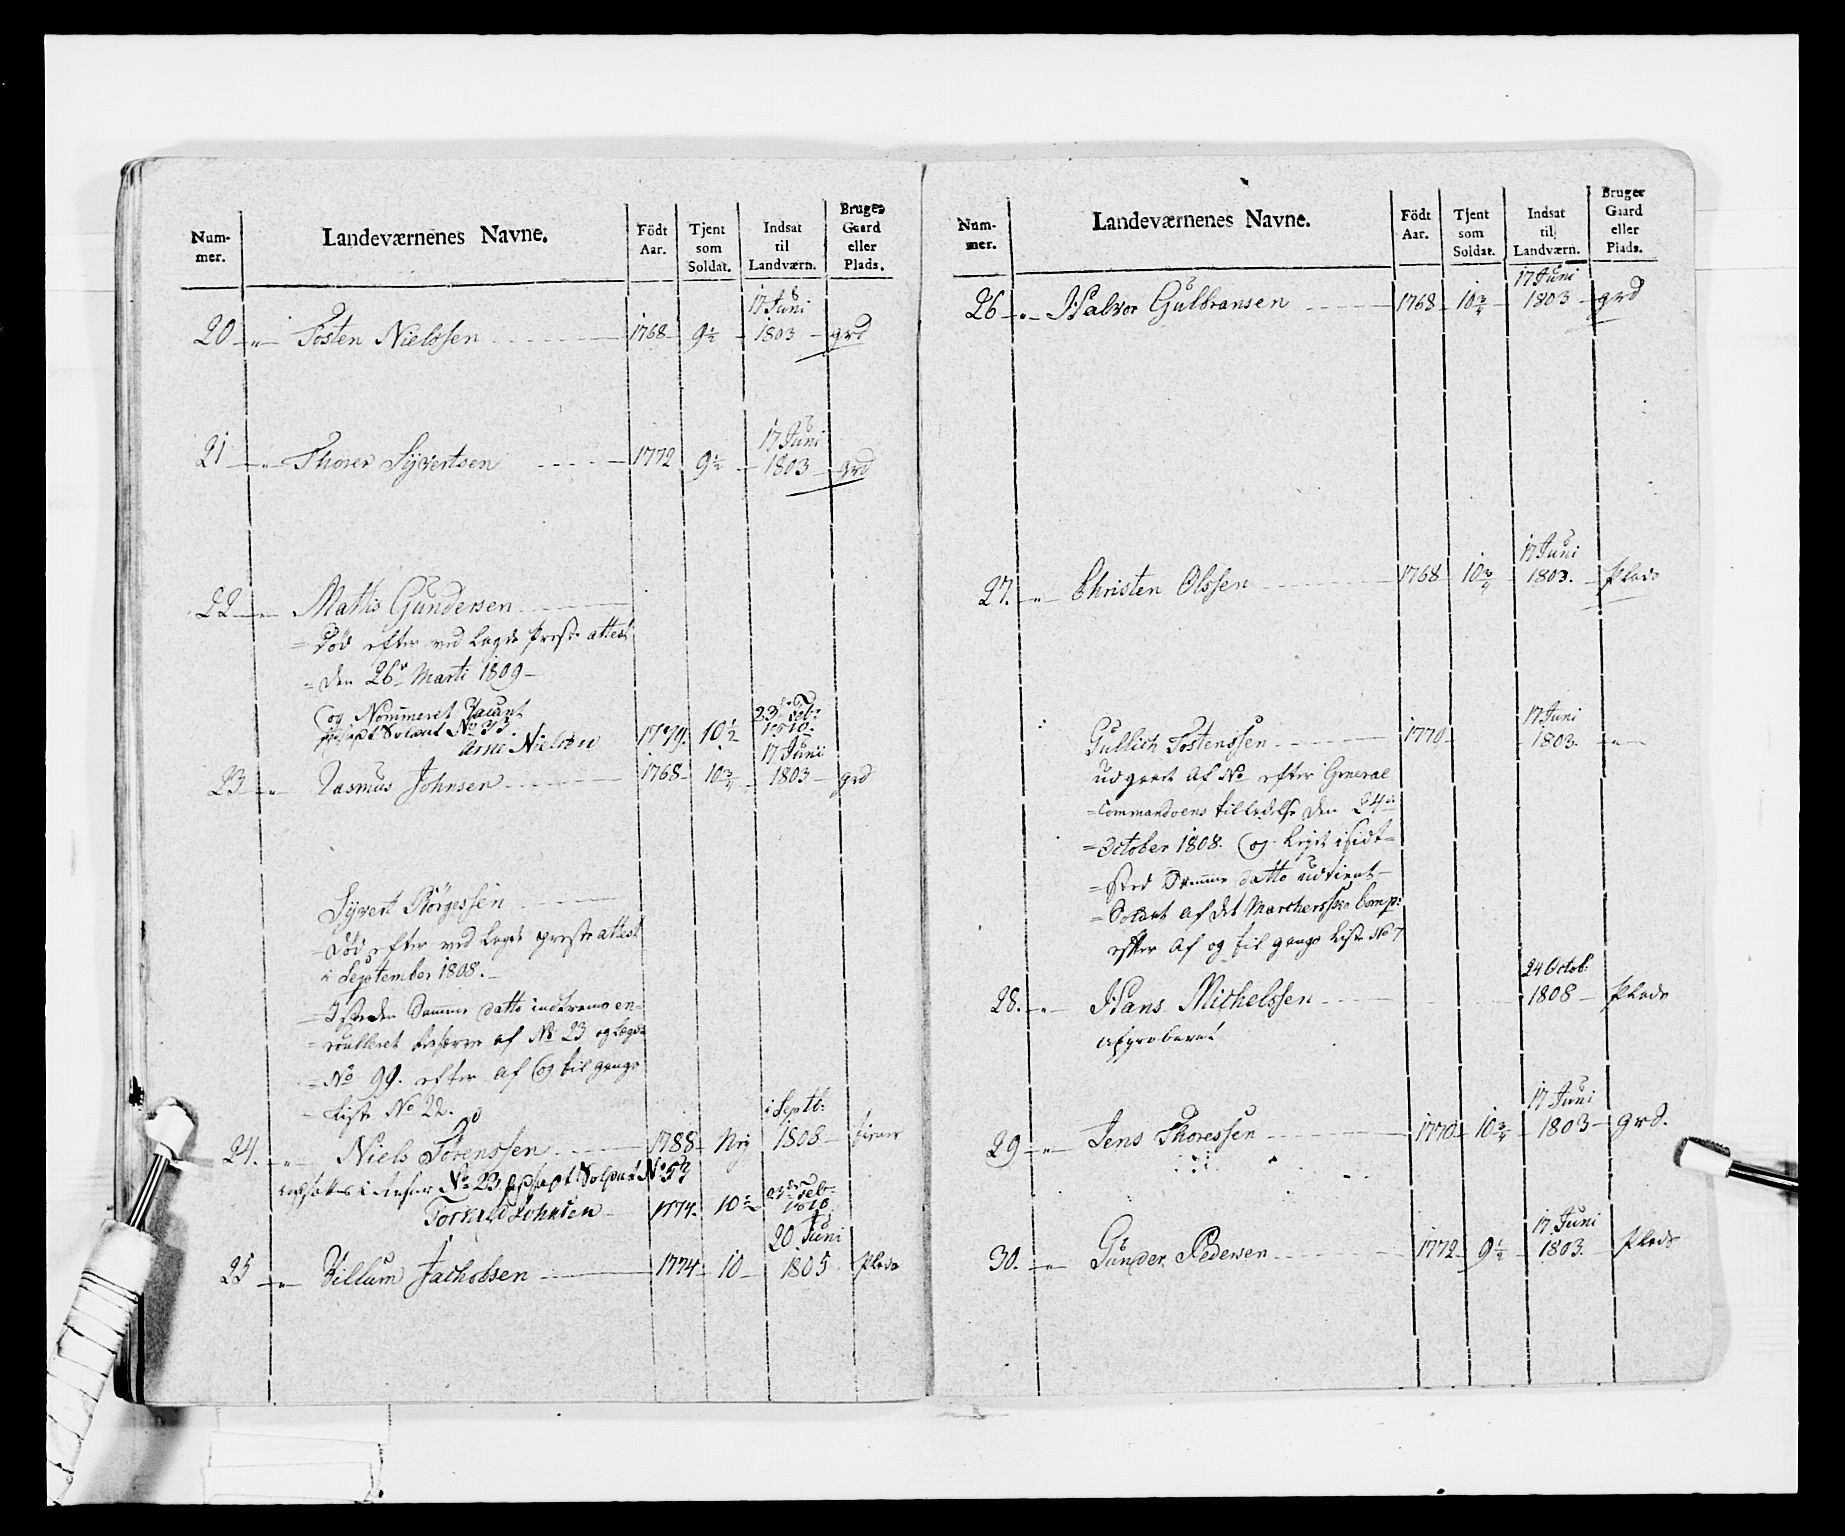 Num-
mer.
Landeværnenes Navne.
Födt
Aar.
Tjent
som
Soldat.
Indsat
til
Landværn.
Bruger
Gaard
eller
Plads.
20 Tosten Nielssen 1768 9½ 17 Juni 1803 grd
21 Thorer Syvertsen 1772 9½ 17 Juni 1803 grd
22 Mathis Gundersen
Död efter ved lagde Preste attest
den 26 Marti 1809
og Nommeret Vacant
Soldat No 33.
Arne Nielsen 1779. 10½ 23 Feb: 1810.
23 Rasmus Johnsen 1768 10¾ 17 Juni 1803 grd
Syvert Börgessen
Död efter ved lagde preste attest
i September 1808.
I steden Samme datto inderems en-
roulleret Reserve af No 23 og Lægd
No 99. efter af og til gangs
Liste No 22.
24. Niels Sörenssen 1788 Ny i Septb: 1808
indsatte i No 23 Soldat No 53
Johnsen 1774. 10½ 23 Feb: 1810
25 Villum Jachobsen 1774 10 20 Juni 1805 Plads
Num-
mer.
Landeværnenes Navne.
Födt
Aar.
Tjent
som
Soldat.
Indsat
til
Landværn.
Bruger
Gaard
eller
Plads.
26 Halvor Gulbransen 1768 10¾ 17 Juni 1803 grd
27. Christen Olssen 1768 10¾ 17 Juni 1803. Plads
Gullich Tostenssen 1770 17 Juni 1803.
udgaaet af No efter General
Commandoens tilladelse den 24de
October 1808. og
Sted Samme datto udtient
Soldat af det Comp:
efter af og til gangs Liste No 7
28. Hans Michelssen 24 Octob: 1808 Plads
approberet
29 Jens Thoressen 1770 10¾ 17 Juni 1803 grd.
30. Gunder Pedersen 1772 9½ 17 Juni 1803. Plads